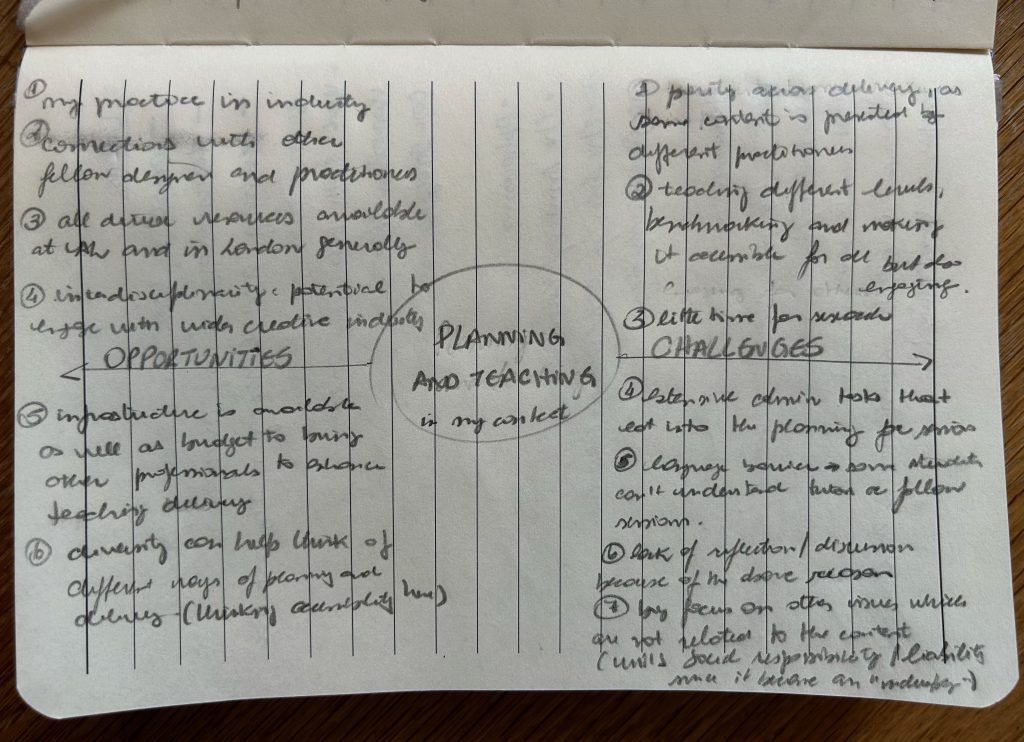 ① my practice in industry
② connections with other
fellow designers and practitioners
③ all diverse resources available
at UAL and in London generally
④ interdisciplinarity: potential to
engage with wider creative industries
OPPORTUNITIES
⑤ infrastructure is available
as well as budget to bring
other professionals to enhance
teaching delivery
⑥ diversity can help think of
different ways of planning and
delivery (thinking accessibility here)
PLANNING
AND TEACHING
in my context
① parity across delivery, as
same content is presented by
different practitioners
② teaching different levels,
benchmarking and making
it accessible for all but also
engaging.
③ little time for research
CHALLENGES
④ extensive admin tasks that
eat into the planning for sessions
⑤ language barrier → some students
can't understand tutors or follow
sessions.
⑥ lack of reflection / discussion
because of the above reason
⑦ big focus on other issues which
are not related to the content
(uni's social responsibility / liability
since it became an "industry")